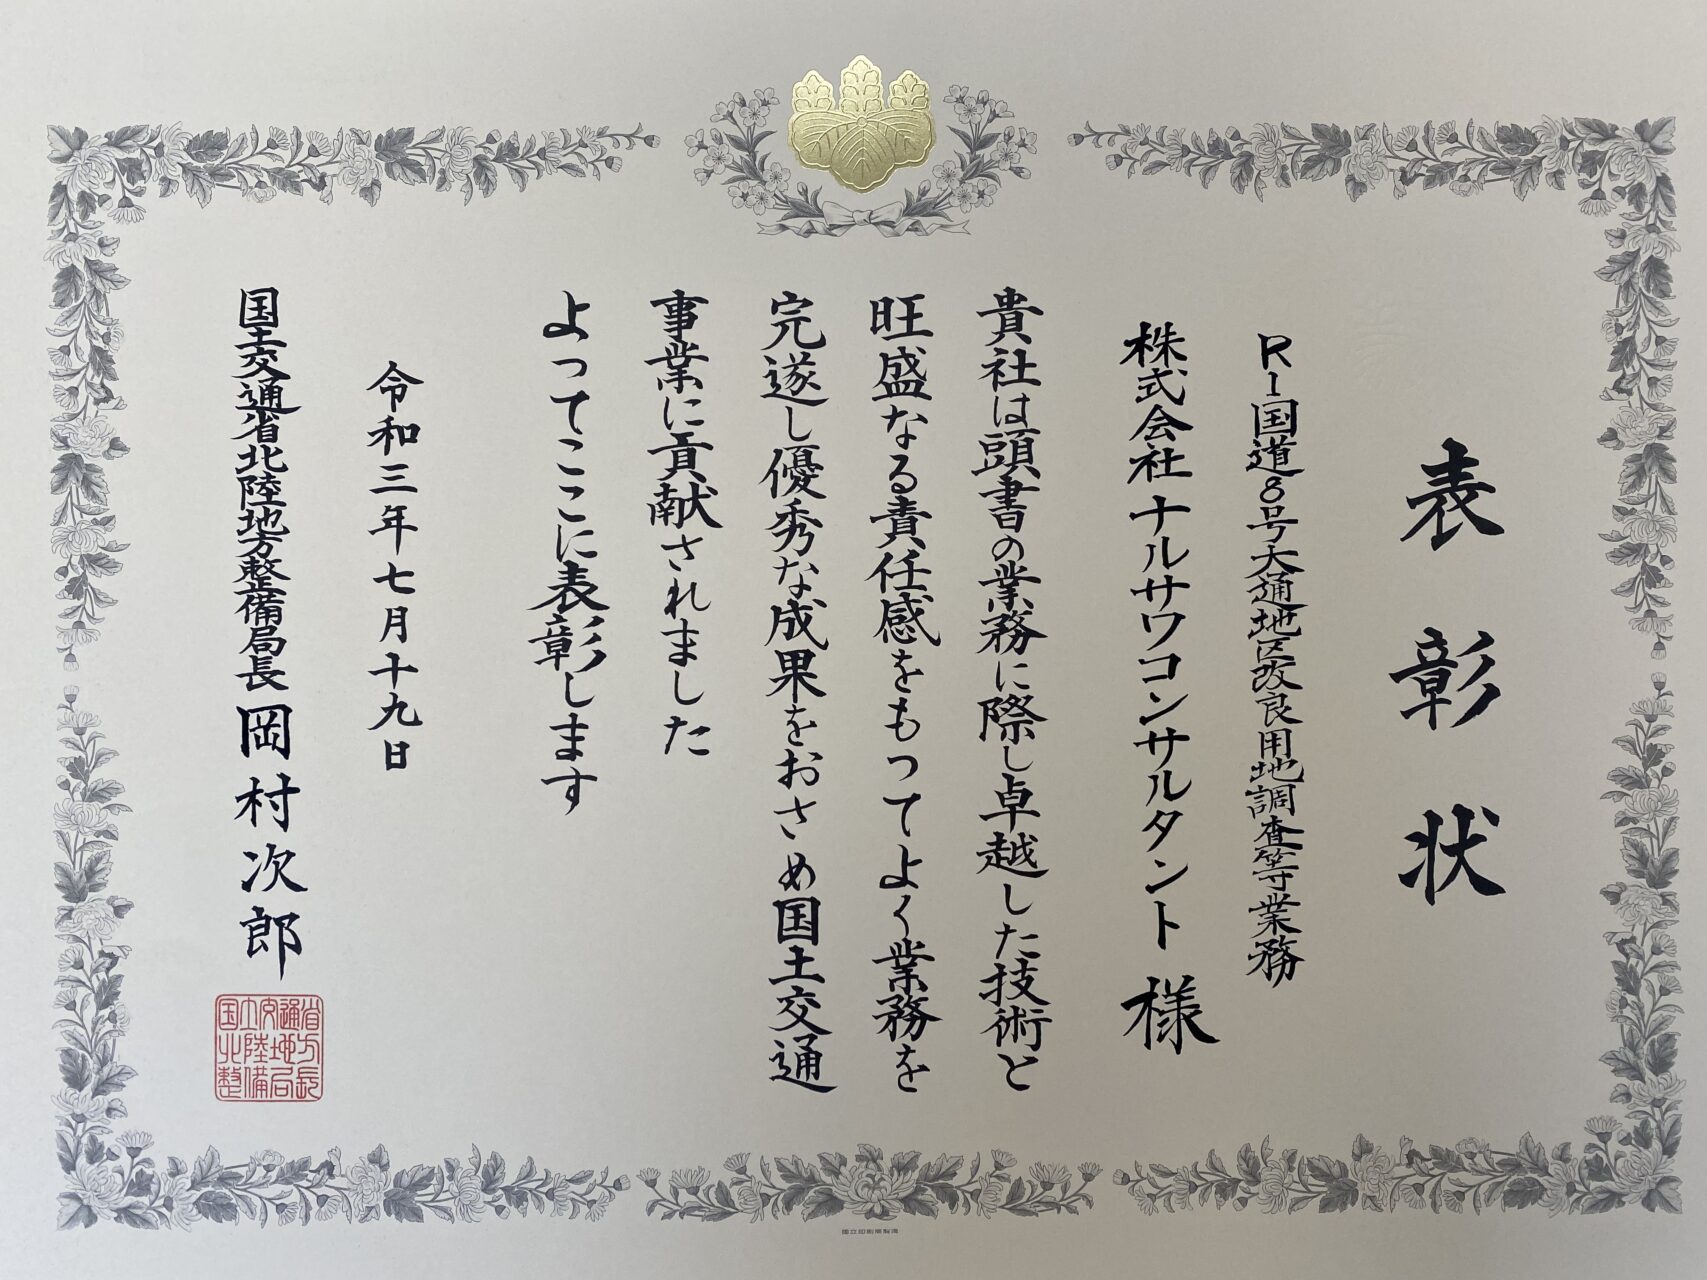 表彰状
R1国道8号大通地区改良用地調査等業務
株式会社ナルサワコンサルタント様
貴社は頭書の業務に際し卓越した技術と
旺盛なる責任感をもつてよく業務を
完遂し優秀な成果をおさめ国土交通
事業に貢献されました
よってここに表彰します
令和三年七月十九日
国土交通省北陸地方整備局長 岡村次郎